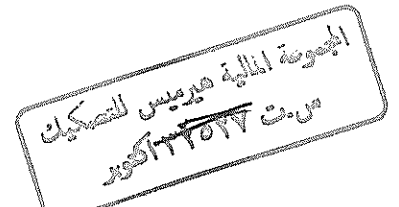 المجموعة المالية هيرميس للتصكيك
س.ت ٢٢٥٢٧ اكتوبر